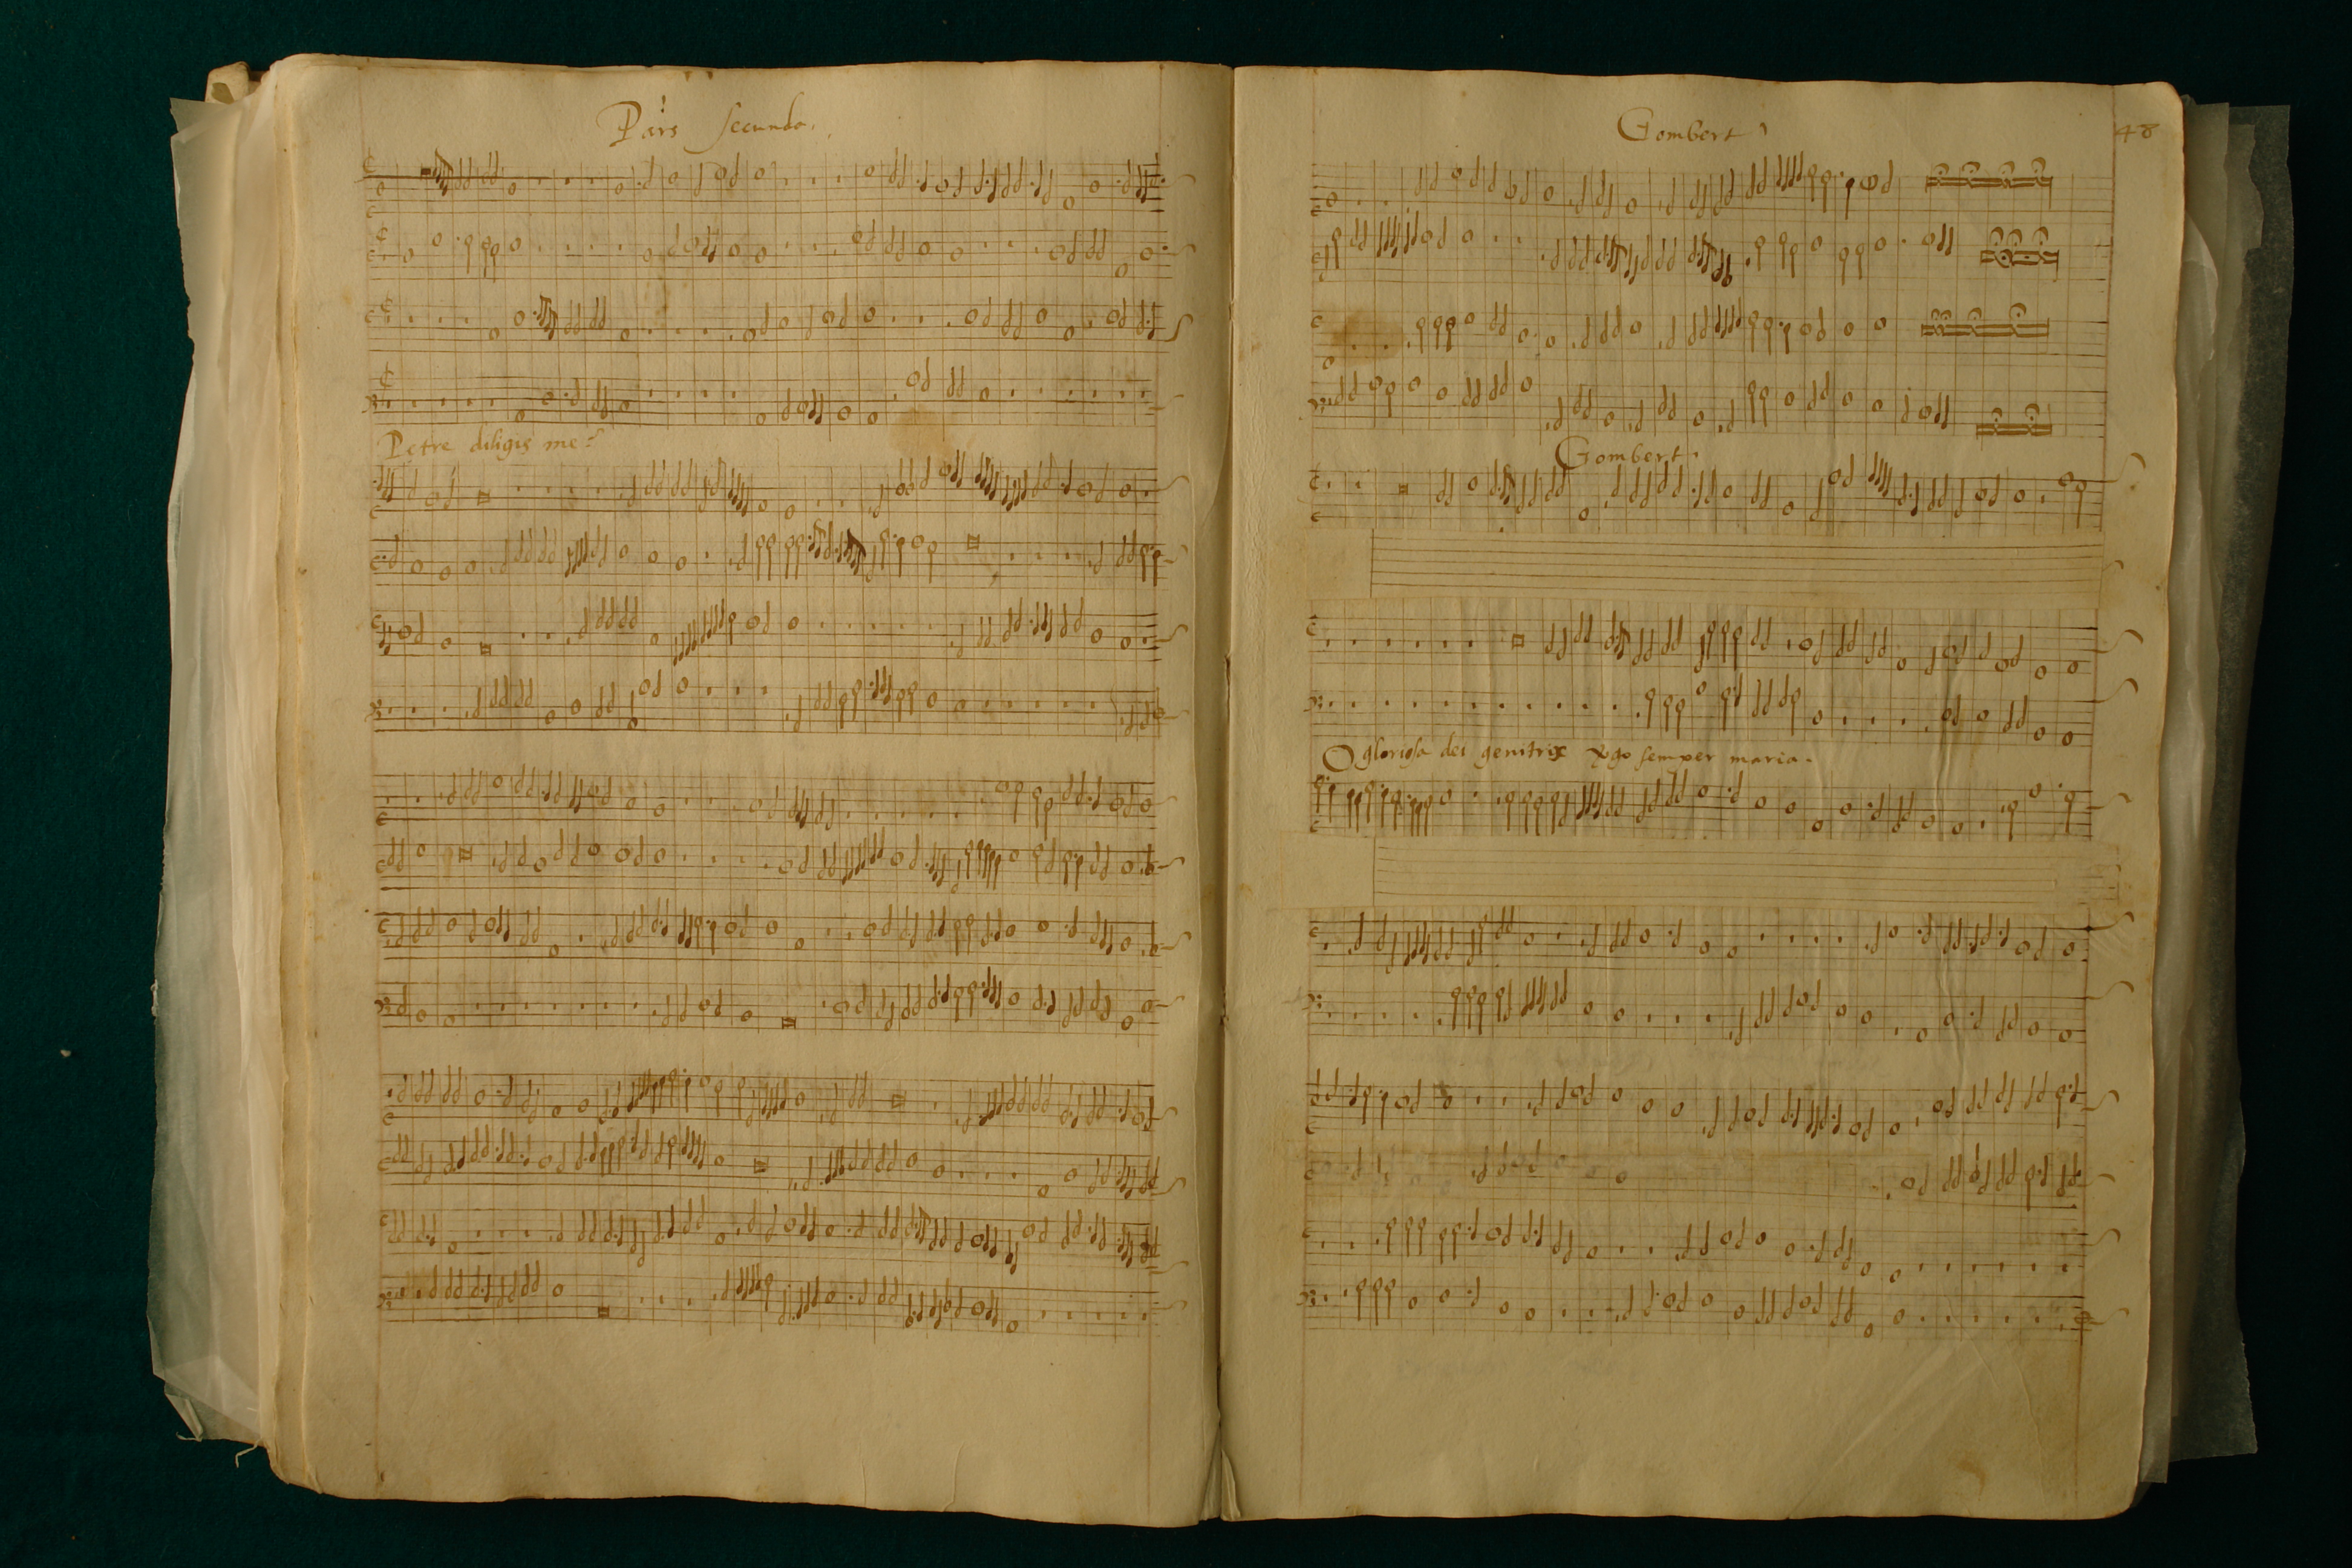 Pars secunda.
Petre diligis me?
Gombert
48
Gombert.
O gloriosa dei genitrix v̾go semper maria.